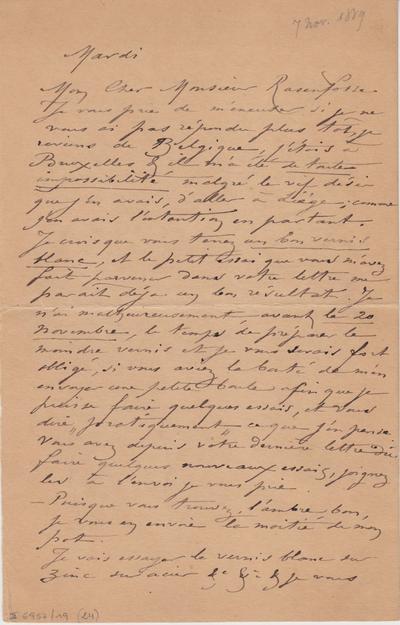 7 Nov. 1889
Mardi
Mon Cher Monsieur Rassenfosse.
Je vous prie de m'excuser si je ne
vous ai pas répondu plus tôt, je
reviens de Belgique, j'étais à
Bruxelles & il m'a été de toute
impossibilité malgré le vif désir
que j'en avais, d'aller à Liège, comme
j'en avais l'intention en partant.
Je crois que vous tenez un bon vernis
blanc, et le petit essai que vous m'avez
fait parvenir dans votre lettre me
paraît déjà un bon résultat. Je
n'ai malheureusement avant le 20
novembre, le temps de préparer le
moindre vernis et je vous serais fort
obligé, si vous aviez la bonté de m'en
envoyer une petite boule afin que je
puisse faire quelques essais, et vous
dire „pratiquement" ce que j'en pense
Vous avez depuis votre dernière lettre dû
faire quelques nouveaux essais, joignez
les à l'envoi je vous prie.
— Puisque vous trouvez l'ambre bon,
je vous en envoie la moitié de mon
pot.
Je vais essayer le vernis blanc sur
zinc sur acier &c &c & je vous
II 6957/19 (24)